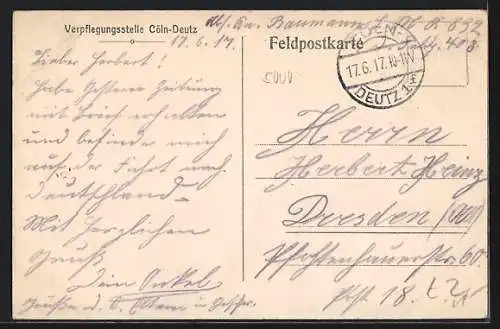 Verpflegungsstelle Cöln-Deutz
17.6.17.
Lieber Herbert!
Habe Gestern Zeitung
mit Brief erhalten
und befinde mich
auf der Fahrt nach
Deutschland
Mit herzlichen
Gruß
Dein Onkel
Grüße a. d. Eltern u.
Abs. Baumann
Feldpostkarte
CÖLN
17.6.17.10-11V
DEUTZ 1
Herrn
Herbert Heinz
Dresden
Pfotenhauerstr. 60.
18.